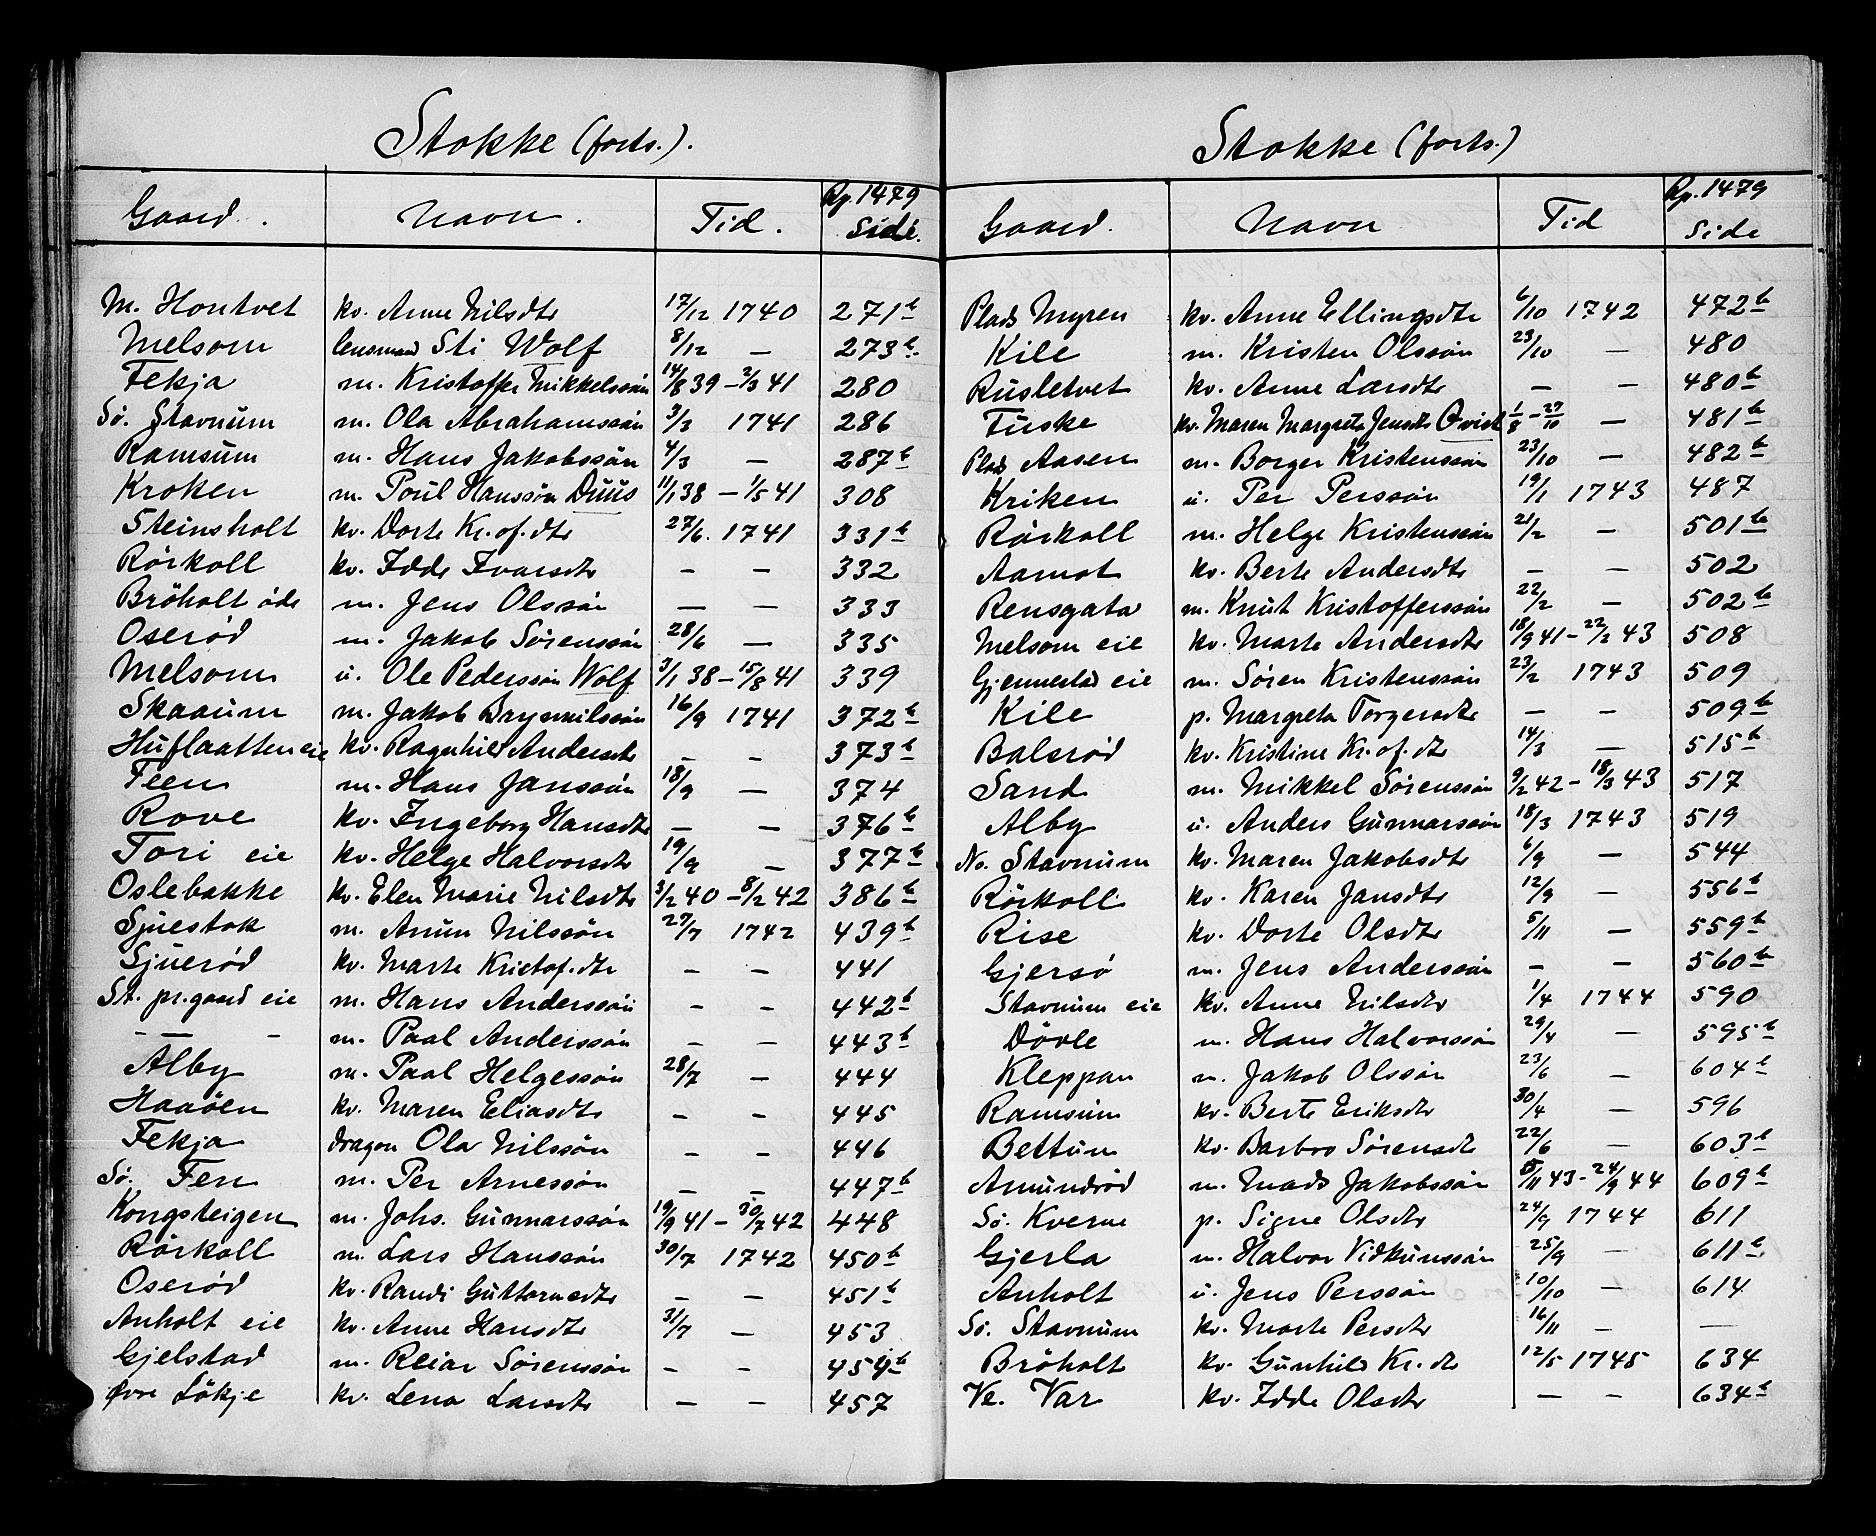 Stokke (forts.).
Gaard. Navn. Tid. Rp. 1479 Side.
M. Hontvet kv. Anne Nilsdtr 17/12 1740 271b
Melsom lensmand Sti Wolf 8/12 — 273b
Fekja m. Kristoffer Mikkelssön 14/8 39 – 2/3 41 280
Sö. Stavnum m. Ola Abrahamssön 3/3 1741 286
Ramsum m. Hans Jakobssön 4/3 — 287b
Kroken m. Poul Hanssön Duus 11/1 38 – 1/5 41 308
Steinsholt kv. Dorte Kr.of.dtr 27/6. 1741 331b
Rörkoll kv. Idde Ivarsdtr — — 332
Bröholt öde m. Jens Olssön — — 333
Oseröd m. Jakob Sörenssön 28/6 — 335
Melsom u. Ole Pederssön Wolf 3/1 38 – 15/8 41 339
Skaaum m. Jakob Brynnilssön 16/9 1741 372b
Huflaatten eie kv. Ragnhild Andersdtr — — 373b
Feen m. Hans Janssön 18/9 — 374
Rove kv. Ingeborg Hansdtr — — 376b
Tori eie kv. Helge Halvorsdtr 19/9 — 377b
Oslebakke kv. Elen Marie Nilsdtr 3/2 40 – 8/2 42 386b
Sjuestok m. Anun Nilssön 27/7 1742 439b
Sjueröd kv. Marte Kristof.dtr — — 441
St. pr.gaard eie m. Hans Anderssön — — 442b
— — — m. Paal Anderssön — — 443b
Alby m. Paal Helgessön 28/7 — 444
Haaöen kv. Maren Eliasdtr — — 445
Fekja dragon Ola Nilssön — — 446
Sö. Fen m. Per Arnessön — — 447b
Kongsteigen m. Johs. Gunnarssön 19/9 41 – 30/7 42 448
Rörkoll m. Lars Hanssön 30/7 1742 450b
Oseröd kv. Randi Guttormsdtr — — 451b
Anholt eie kv. Anne Hansdtr 31/7 — 453
Gjelstad m. Reiar Sörenssön — — 454b
Övre Lökje kv. Lena Larsdtr — — 457
Stokke (forts.)
Gaard. Navn Tid Rp. 1479 Side
Plads Myren kv. Anne Ellingsdtr 6/10 1742 472b
Kile m. Kristen Olssön 23/10 — 480
Rusletvet kv. Anne Larsdtr — — 480b
Fuske kv. Maren Margreta Jensdtr Qvist 1/8 – 27/10 — 481b
Plads Aasen m. Borger Kristenssön 23/10 — 482b
Kriken u. Per Perssön 19/1 1743 487
Rörkoll m. Helge Kristenssön 21/2 — 501b
Aamot kv. Berte Andersdtr — — 502
Rensgata m. Knut Kristofferssön 22/2 — 502b
Melsom eie kv. Marte Andersdtr 18/9 41 – 22/2 43 508
Gjennestad eie m. Sören Kristenssön 23/2 1743 509
Kile p. Margreta Torgersdtr — — 509b
Balsröd kv. Kristine Kr.of.dtr 14/3 — 515b
Sand m. Mikkel Sörenssön 9/2 42 – 18/3 43 517
Alby u. Anders Gunnarssön 18/3 1743 519
No. Stavnum kv. Maren Jakobsdtr 6/9 — 544
Rörkoll kv. Karen Jansdtr 12/9 — 556b
Rise kv. Dorte Olsdtr 5/11 — 559b
Gjersö m. Jens Anderssön — — 560b
Stavnum eie kv. Anne Nilsdtr 1/4 1744 590
Dövle m. Hans Halvorssön 29/4 — 595b
Kleppan m. Jakob Olssön 23/6 — 604b
Ramsum kv. Berte Eriksdtr 30/4 — 596
Bettum kv. Barbro Sörensdtr 22/6 — 603b
Amundröd m. Mads Jakobssön 8/11 43 – 24/9 44 609b
Sö. Kverne p. Signe Olsdtr 24/9 1744 611
Gjerla m. Halvor Vidkunssön 25/9 — 611b
Anholt u. Jens Perssön 10/10 — 614
Sö. Stavnum kv. Marte Persdtr 16/11 — —
Bröholt kv. Gunhild Kr.dtr 12/5 1745 634
Ve. Var kv. Idde Olsdtr — — 634b